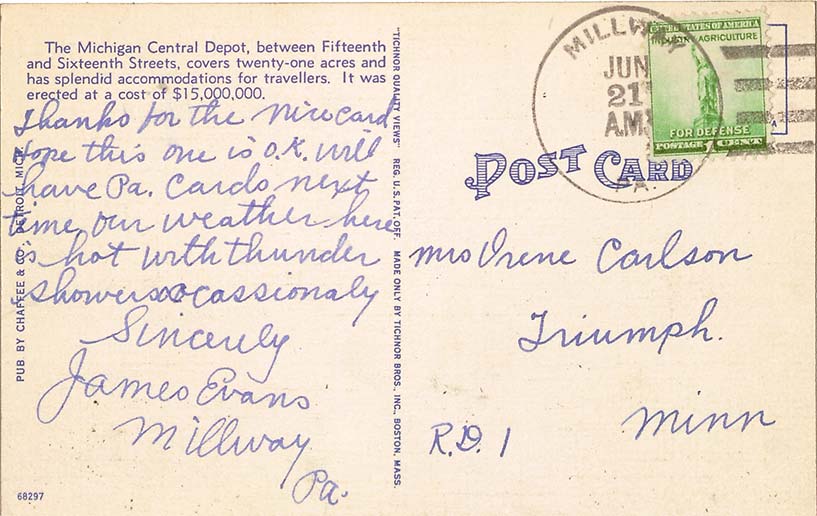 The Michigan Central Depot, between Fifteenth
and Sixteenth Streets, covers twenty-one acres and
has splendid accommodations for travellers. It was
erected at a cost of $15,000,000.
Thanks for the Nice card
Hope this one is O.K. will
have Pa. Cards next
time our weather here
is hot with thunder
showers ocassionaly
Sincerly
James Evans
Millway
Pa.
68297
PUB BY CHAFFEE & CO., DETROIT, MICH.
"TICHNOR QUALITY VIEWS" REG. U.S. PAT. OFF. MADE ONLY BY TICHNOR BROS., INC., BOSTON, MASS.
POST CARD
MILLWAY
JUN
21
A.M.
PA.
UNITED STATES OF AMERICA
INDUSTRY AGRICULTURE
FOR DEFENSE
POSTAGE 1 CENT
Mrs Irene Carlson
Triumph.
Minn
R.D. 1